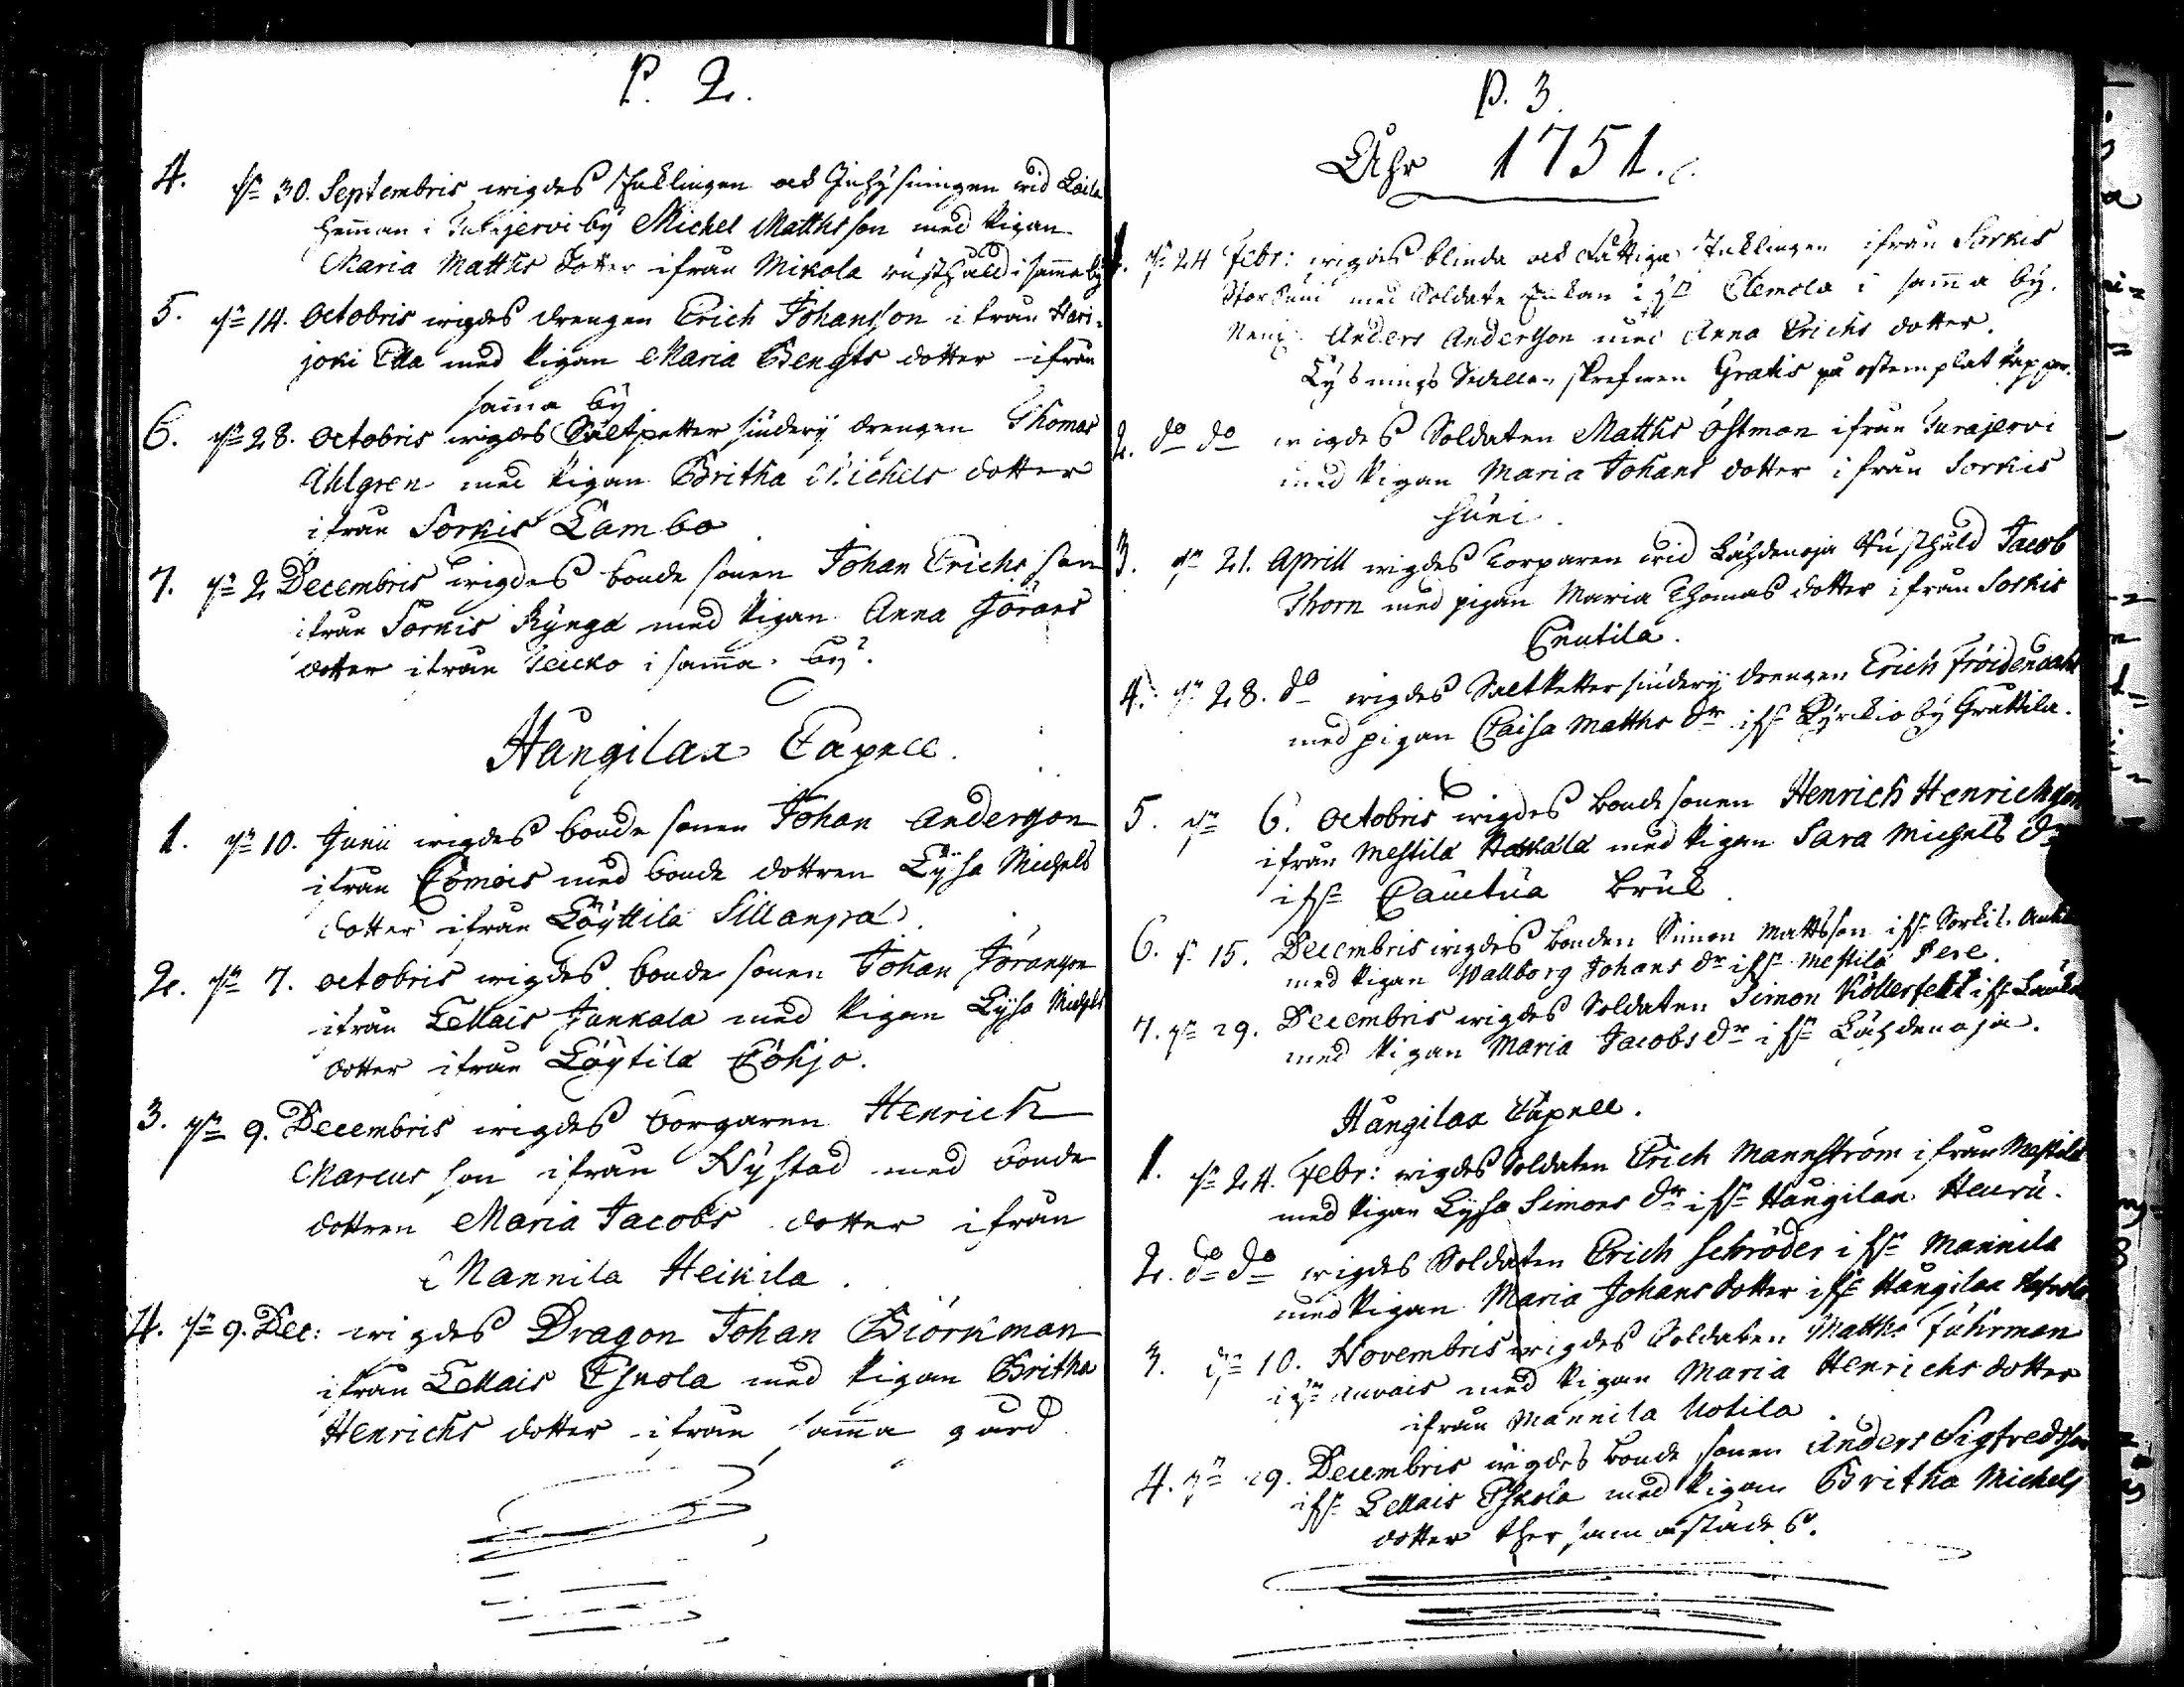 P. 2.
4. dn 30. Septembris wigdes och Inhysningen wid
hemman i by Michel Matthsson med Pigan
Maria Matths dotter ifrån Mikola rusthåld i samma by
5. dn 14. Octobris wigdes drengen Erich Johansson ifrån Hari-
joki Ella med Pigan Maria Bengts dotter ifrån
samma by
6. dn 28. Octobris wigdes Saltpetter siudery drengen Thomas
Ahlgren med Pigan Britha Michels dotter
ifrån Sorkis Lambo
7. dn 2 Decembris wigdes bonde sonen Johan Erichs son
ifrån Sorkis Rynga med Pigan Anna Jörans
dotter ifrån i samma by.
Hangilax Capell.
1. dn 10. Junii wigdes bonde sonen Johan Andersson
ifrån med bonde dottren Lysa Michels
dotter ifrån Löyttilä Sillanpä.
2. dn 7. octobris wigdes bonde sonen Johan Jöransson
ifrån Lellais Junkala med Pigan Lysa Michels
dotter ifrån Löytilä
3. dn 9. Decembris wigdes borgaren Henrich
Marcus son ifrån Nystad med bonde
dottren Maria Jacobs dotter ifrån
Mannila Heikila.
4. dn 9. Dec: wigdes Dragon Johan Biörkman
ifrån Lellais Eskola med Pigan Britha
Henrichs dotter ifrån samma gård
P. 3.
Åhr 1751.
1. dn 24 Febr: wigdes blinda och fattiga Inhlingen ifrån Sorkis
med Soldate Enkan Clemola i samma by.
Anders Andersson med Anna Erichs dotter.
Lysnings Sedellen skrefwen Gratis på ostemplat papper.
2. do do wigdes Soldaten Matths Östman ifrån Turajervi
med Pigan Maria Johans dotter ifrån Sorkis
Huni.
3. dn 21. Aprill wigdes Torparen wid Lähdenoja Rusthåld Jacob
Thorn med pigan Maria Thomas dotter ifrån Sorkis
Cnutila.
4. dn 28. do wigdes Saltpetter siudery drengen Erich
med pigan Caisa Matths dr ifn Kyrkio by Gruttila.
5. dn 6. Octobris wigdes bonde sonen Henrich Henrichsson
ifrån Mestilä med Pigan Sara Michels dr
ifn Cauttua Bruk
6. d 15. Decembris wigdes bonden Simon Mattsson ifn Sorkis
med Pigan Wallborg Johans dr ifn Mestilä Pere.
7. dn 29. Decembris wigdes Soldaten Simon ifn
med Pigan Maria Jacobs dr ifn Lähdenoja.
Hangilax Capell.
1. dn 24. Febr: wigdes Soldaten Erich Mannström ifrån Mestilä
med Pigan Lysa Simons dr ifn Hangilax
2. do do wigdes Soldaten Erich Schröder ifn Mannila
med Pigan Maria Johans dotter ifn Hangilax
3. dn 10. Novembris wigdes Soldaten Matths Fuhrman
Auvais med Pigan Maria Henrichs dotter
ifrån Mannila Uotila
4. dn 29. Decembris wigdes bonde sonen Anders Sigfredsson
ifn Lellais Eskola med Pigan Britha Michels
dotter ther sammastädes.